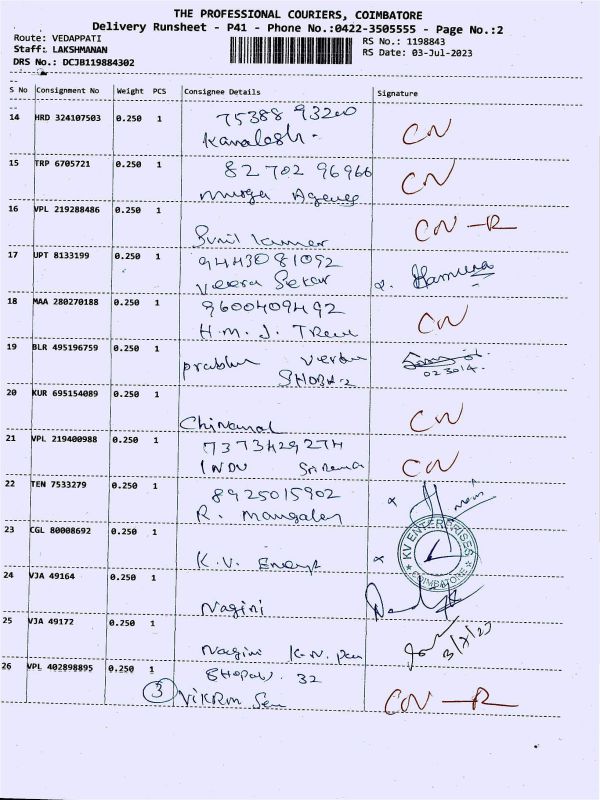 THE PROFESSIONAL COURIERS, COIMBATORE
Delivery Runsheet - P41 - Phone No.:0422-3505555 - Page No.:2
Route: VEDAPPATI
RS No.: 1198843
Staff: LAKSHMANAN
RS Date: 03-Jul-2023
DRS No.: DCJB119884302
S No Consignment No Weight PCS Consignee Details Signature
14 HRD 324107503 0.250 1 75388 93200 CN
15 TRP 6705721 0.250 1 82702 96966 CN
16 VPL 219288486 0.250 1 CN-R
Sunil Kumar
17 UPT 8133199 0.250 1 9443081092
Veera Sekar
18 MAA 280270188 0.250 1 9600409492 CN
H.M.J.
19 BLR 495196759 0.250 1 prabhu
023014.
20 KUR 695154089 0.250 1 CN
21 VPL 219400988 0.250 1 7373429274 CN
INDU
22 TEN 7533279 0.250 1 8925015902
R.
23 CGL 80008692 0.250 1 K.V.
KV ENTERPRISES
COIMBATORE
24 VJA 49164 0.250 1 Nagini
25 VJA 49172 0.250 1 Nagini
3/7/23
26 VPL 402898895 0.250 1 32
3 Vikrm Sen CN-R